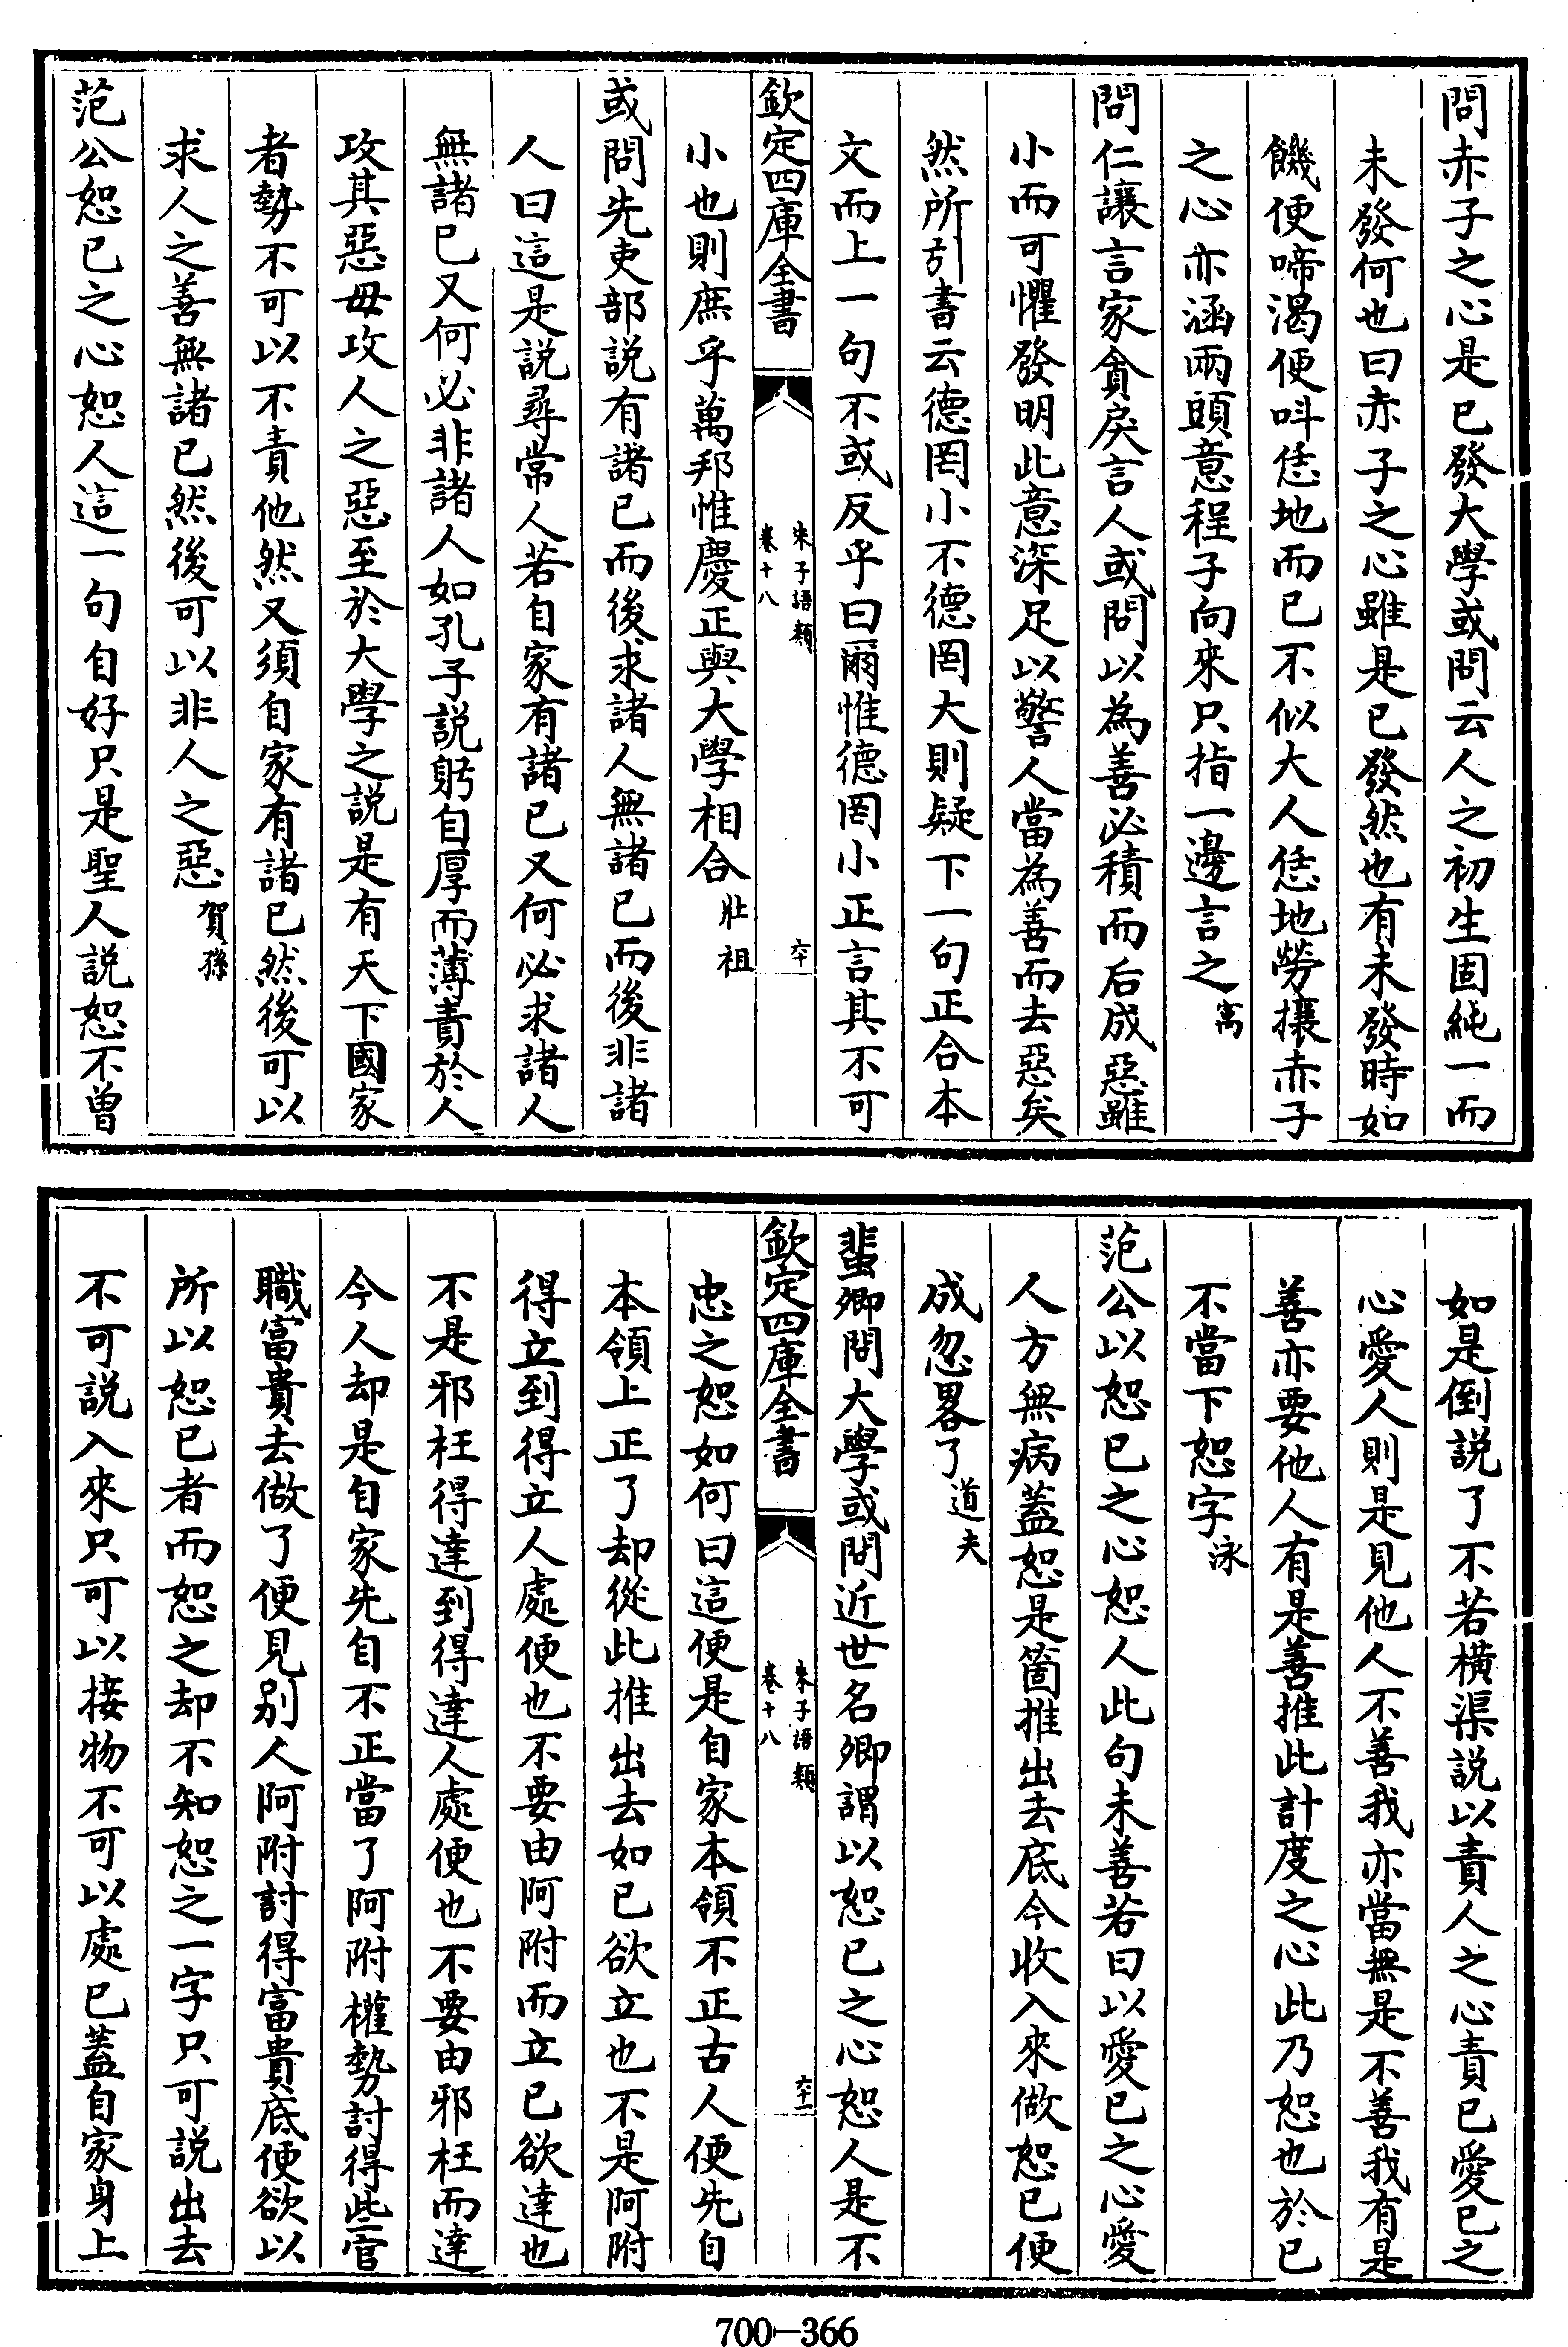 問赤子之心是已發大學或問云人之初生固純一而
未發何也曰赤子之心雖是已發然也有未發時如
饑便啼渴便呌恁地而已不似大人恁地勞攘赤子
之心亦涵兩頭意程子向來只指一邊言之㝢
問仁讓言家貪戾言人或問以為善必積而后成惡雖
小而可懼發明此意深足以警人當為善而去惡矣
然所引書云德罔小不德罔大則疑下一句正合本
文而上一句不或反乎曰爾惟德罔小正言其不可
欽定四庫全書
朱子語類
卷十八
六十
小也則庶乎萬邦惟慶正與大學相合壯祖
或問先吏部説有諸已而後求諸人無諸已而後非諸
人曰這是説尋常人若自家有諸已又何必求諸人
無諸已又何必非諸人如孔子説躬自厚而薄責於人
攻其惡毋攻人之惡至於大學之説是有天下國家
者勢不可以不責他然又須自家有諸已然後可以
求人之善無諸已然後可以非人之惡賀孫
范公恕已之心恕人這一句自好只是聖人説恕不曾
如是倒説了不若橫渠説以責人之心責已愛已之
心愛人則是見他人不善我亦當無是不善我有是
善亦要他人有是善推此計度之心此乃恕也於已
不當下恕字泳
范公以恕已之心恕人此句未善若曰以愛已之心愛
人方無病蓋恕是箇推出去底今收入來做恕已便
成忽畧了道夫
蜚卿問大學或問近世名卿謂以恕已之心恕人是不
欽定四庫全書
朱子語類
卷十八
六十一
忠之恕如何曰這便是自家本領不正古人便先自
本領上正了却從此推出去如已欲立也不是阿附
得立到得立人處便也不要由阿附而立已欲達也
不是邪枉得達到得達人處便也不要由邪枉而達
今人却是自家先自不正當了阿附權勢討得些官
職富貴去做了便見别人阿附討得富貴底便欲以
所以恕已者而恕之却不知恕之一字只可説出去
不可説入來只可以接物不可以處已蓋自家身上
700-366